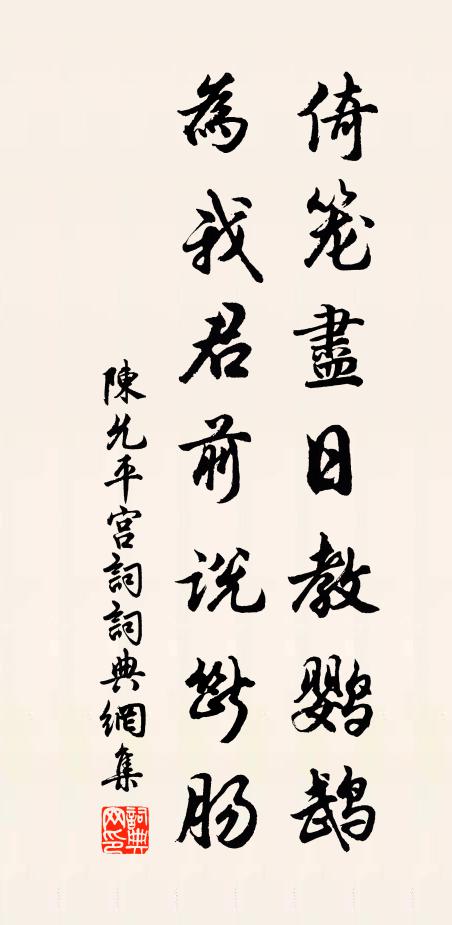 倚笼盡日教鹦鹉
為我君前説断肠
陳允平宫詞詞典網集
詞典
网印